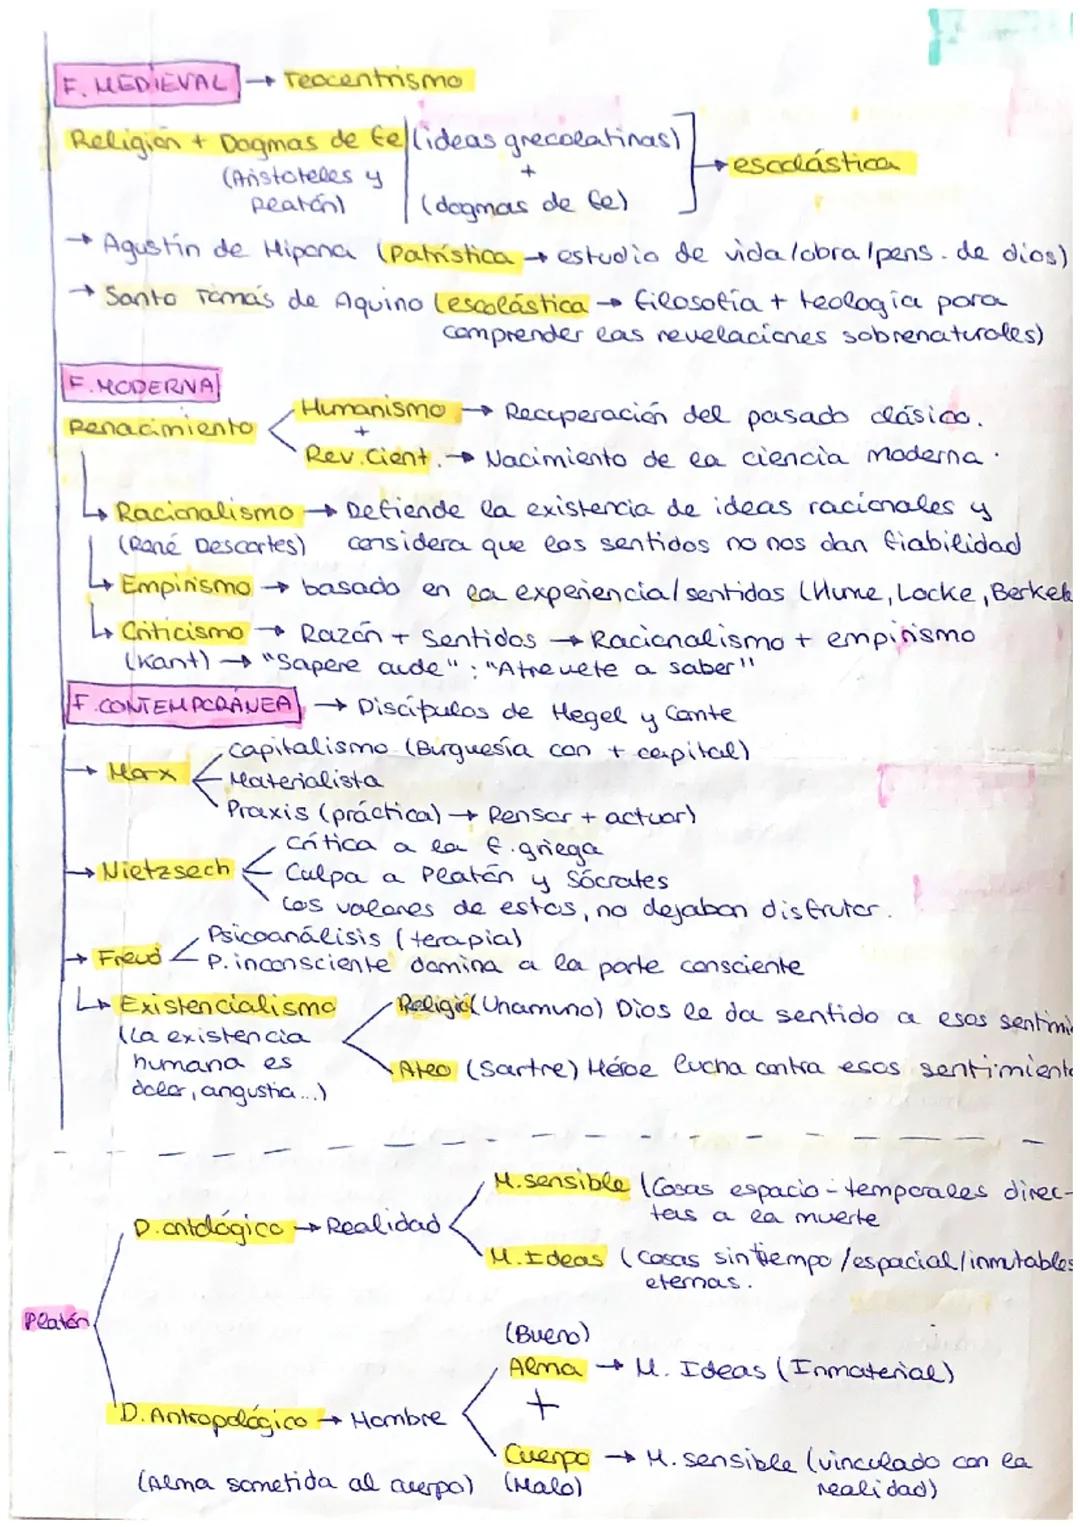 F. MEDIEVAL → Teocentrismo
Religión + Dogmas de fe (ideas grecolatinas)
(Aristoteles y + → escolástica
Platón) (dogmas de fe)
→ Agustín de Hipona (Patrística → estudio de vida/obra/pens. de dios)
→ Santo Tomás de Aquino (escolástica → filosofía + teología para
comprender las revelaciones sobrenaturales)
F. MODERNA
Humanismo → Recuperación del pasado clásico.
Renacimiento +
Rev. Cient. → Nacimiento de la ciencia moderna.
↳ Racionalismo → Defiende la existencia de ideas racionales y
(René Descartes) considera que los sentidos no nos dan fiabilidad
↳ Empirismo → basado en la experiencia/sentidos (Hume, Locke, Berkel
↳ Criticismo → Razón + Sentidos → Racionalismo + empirismo
(Kant) → "Sapere aude" : "Atrevete a saber"
F. CONTEMPORÁNEA → Discípulos de Hegel y Conte
Capitalismo (Burguesía con + capital)
→ Marx Materialista
Praxis (práctica) → Pensar + actuar)
Crítica a la f. griega
→ Nietzsech Culpa a Platón y Sócrates
Los valores de estos, no dejaban disfrutar.
Psicoanálisis (terapia)
→ Freud P. inconsciente domina a la parte consciente
↳ Existencialismo Religio (Unamuno) Dios le da sentido a esos sentimi
(La existencia
humana es Ateo (Sartre) Héroe lucha contra esos sentimiento
dolor, angustia...)
M. sensible (Cosas espacio-temporales direc-
D. ontológico → Realidad tas a la muerte
M. Ideas (Cosas sin tiempo/espacial/inmutables
eternas.
Platón
(Bueno)
Alma → M. Ideas (Inmaterial)
D. Antropológico → Hombre +
Cuerpo → M. sensible (vinculado con la
(Alma sometida al cuerpo) (Malo) realidad)